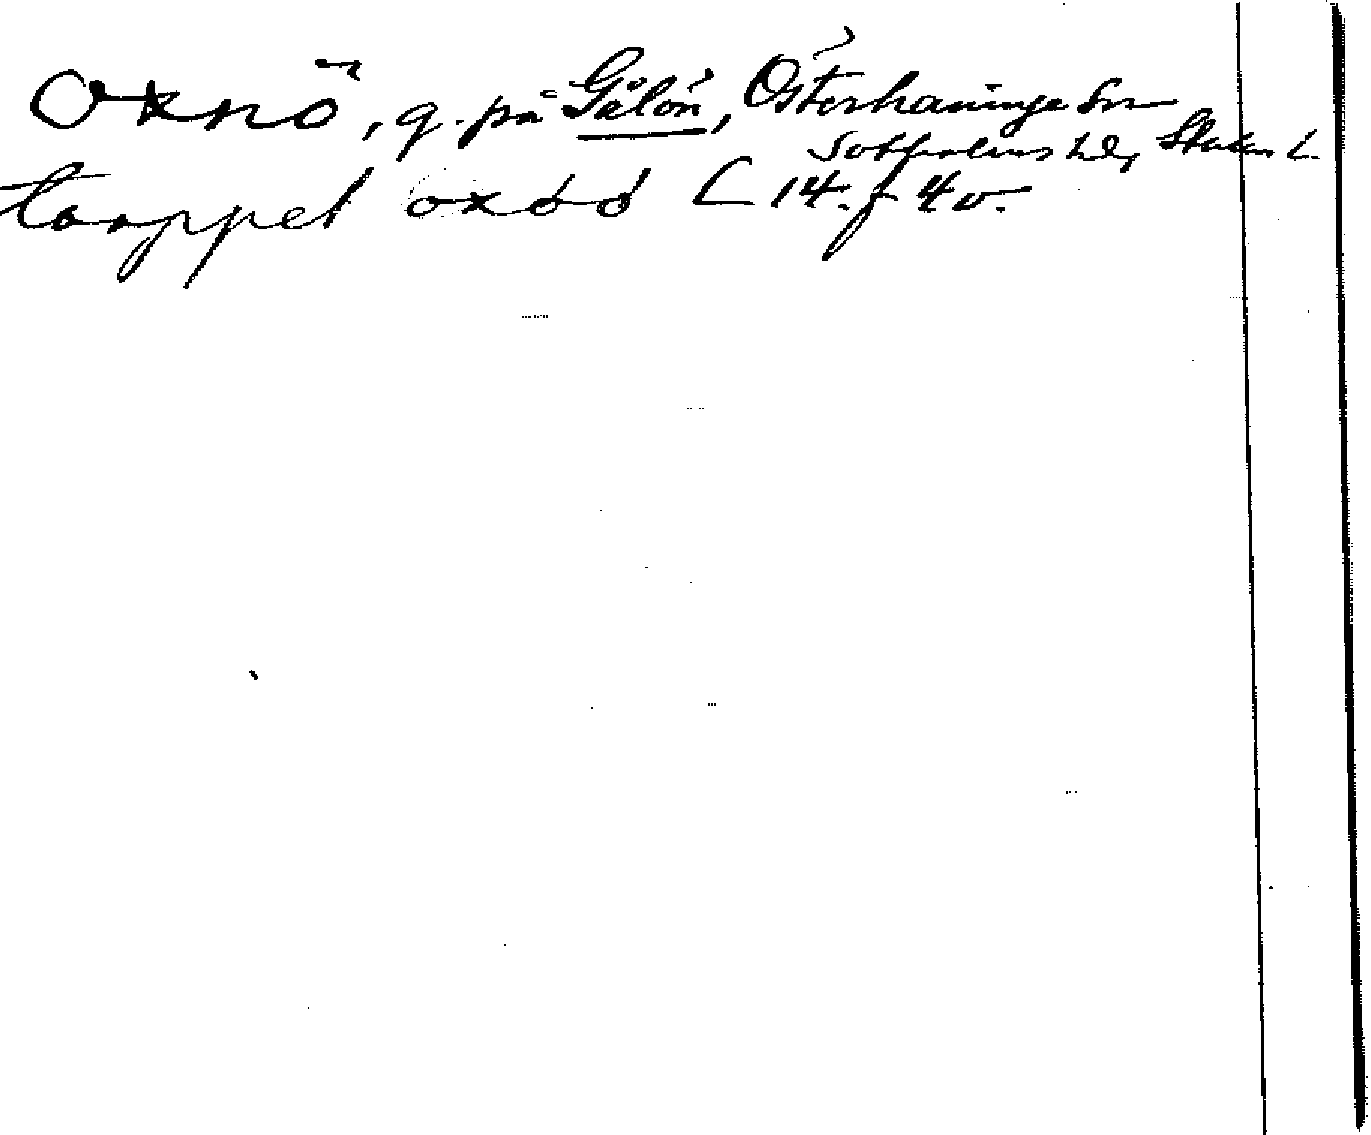 Oxnö, g. på Gålön, Österhaninge Sn
Sotholms hd, Sthlms L.
torppet oxöö L 14. f 4 v.